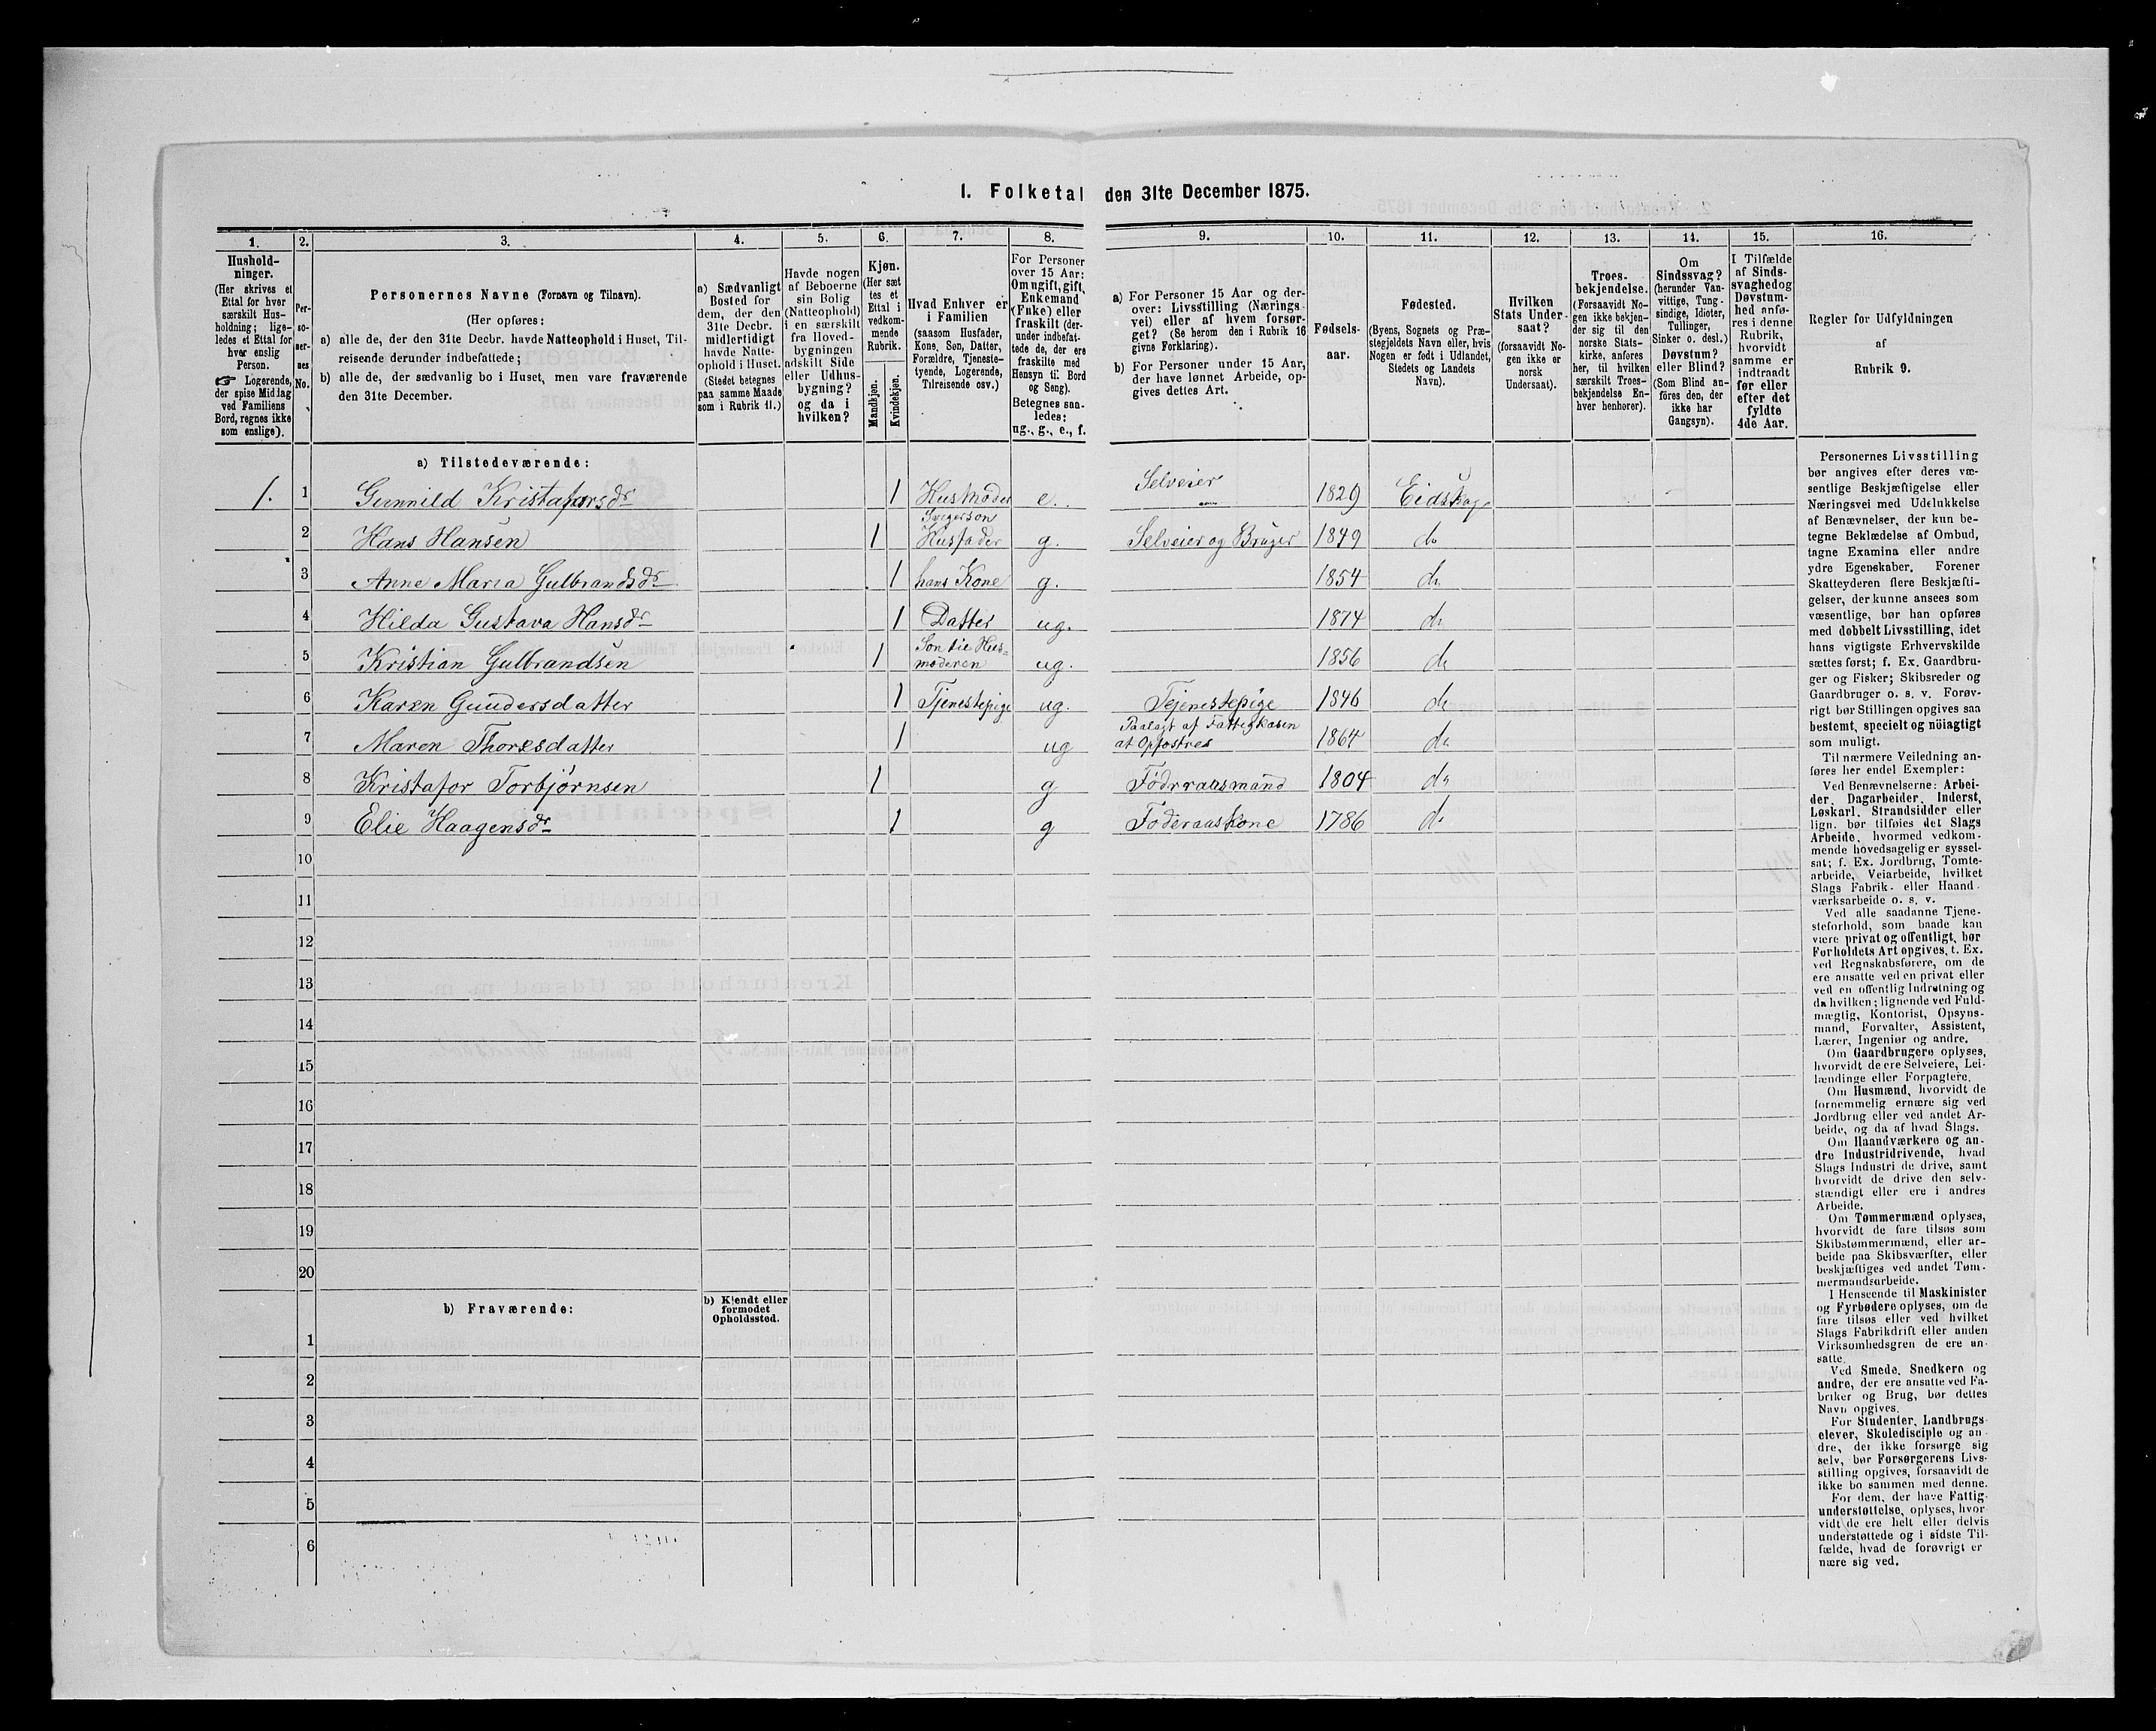 I. Folketal den 31te December 1875.
1.
Hushold-
ninger.
(Her skrives et
Ettal for hver
særskilt Hus-
holdning; lige-
ledes et Ettal for
hver enslig
Person.
☞ Logerende,
der spise Middag
ved Familiens
Bord, regnes ikke
som enslige).
2.
Per-
so-
ner-
nes
No.
3.
Personernes Navne (Fornavn og Tilnavn).
(Her opføres:
a) alle de, der den 31te Decbr. havde Natteophold i Huset, Til-
reisende derunder indbefattede;
b) alle de, der sædvanlig bo i Huset, men vare fraværende
den 31te December.
4.
a) Sædvanligt
Bosted for
dem, der den
31te Decbr.
midlertidigt
havde Natte-
ophold i Huset.
(Stedet betegnes
paa samme Maade
som i Rubrik 11.)
5.
Havde nogen
af Beboerne
sin Bolig
(Natteophold)
i en særskilt
fra Hoved-
bygningen
adskilt Side
eller Udhus-
bygning?
og da i
hvilken?
6.
Kjøn.
(Her sæt
tes et
Ettal i
vedkom-
mende
Rubrik.
Mandkjøn.
Kvindekjøn.
7.
Hvad Enhver er
i Familien
(saasom Husfader,
Kone, Søn, Datter,
Forældre, Tjeneste-
tyende, Logerende,
Tilreisende osv.)
8.
For Personer
over 15 Aar:
Om ugift, gift,
Enkemand
(Enke) eller
fraskilt (der-
under indbefat-
tede de, der ere
fraskilte med
Hensyn til Bord
og Seng).
Betegnes saa-
ledes:
ug., g., e., f.
9.
a) For Personer 15 Aar og der-
over: Livsstilling (Nærings-
vei) eller af hvem forsør-
get? (Se herom den i Rubrik 16
givne Forklaring).
b) For Personer under 15 Aar,
der have lønnet Arbeide, op-
gives dettes Art.
10.
Fødsels-
aar.
11.
Fødested.
(Byens, Sognets og Præ-
stegjeldets Navn eller, hvis
Nogen er født i Udlandet,
Stedets og Landets
Navn).
12.
Hvilken
Stats Under-
saat?
(forsaavidt No-
gen ikke er
norsk
Undersaat).
13.
Troes-
bekjendelse.
(Forsaavidt No-
gen ikke bekjen-
der sig til den
norske Stats-
kirke, anføres
her, til hvilken
særskilt Troes-
bekjendelse En-
hver henhorer).
14.
Om
Sindssvag?
(herunder Van-
vittige, Tung-
sindige, Idioter,
Tullinger,
Sinker o. desl.)
Døvstum?
eller Blind?
(Som Blind an-
føres den, der
ikke har
Gangsyn).
15.
I Tilfælde
af Sinds-
svaghed og
Døvstum-
hed anfø-
res i denne
Rubrik,
hvorvidt
samme er
indtraadt
før eller
efter det
fyldte
4de Aar.
16.
Regler for Udfyldningen
af
Rubrik 9.
a) Tilstedeværende:
1. 1 Gunnild Kristaforsdr 1 Husmoder e. Selveier 1829 Eidskog
2 Hans Hansen 1 Svigersøn Husfader g. Selveier og Bruger 1849 do
3 Anne Maria Gulbrandsdr 1 hans Kone g. 1854 do
4 Hilda Gustava Hansdr 1 Datter ug. 1874 do
5 Kristian Gulbrandsen 1 Søn til Hus-
moderen ug. 1856 do
6 Karen Gundersdatter 1 Tjenestepige ug. Tejenestepige 1846 do
7 Maren Thoresdatter 1 ug Paalagt af Fattigkasen
at Opfostres 1864 do
8 Kristafor Torbjørnsen 1 g Födrraasmand 1804 do
9 Elie Haagensdr 1 g Föderaaskone 1786 do
10
11
12
13
14
15
16
17
18
19
20
b) Fraværende:
b) Kjendt eller
formodet
Opholdssted.
1
2
3
4
5
6
Personernes Livsstilling
bør angives efter deres væ-
sentlige Beskjæftigelse eller
Næringsvei med Udelukkelse
af Benævnelser, der kun be-
tegne Beklædelse af Ombud,
tagne Examina eller andre
ydre Egenskaber. Forener
Skatteyderen flere Beskjæfti-
gelser, der kunne ansees som
væsentlige, bør han opføres
med dobbelt Livsstilling, idet
hans vigtigste Erhvervskilde
sættes først; f. Ex. Gaardbru-
ger og Fisker; Skibsreder og
Gaardbruger o. s. v. Forøv-
rigt bør Stillingen opgives saa
bestemt, specielt og nöiagtigt
som muligt.
Til nærmere Veiledning an-
føres her endel Exempler:
Ved Benævnelserne: Arbei-
der, Dagarbeider, Inderst,
Løskarl, Strandsidder eller
lign. bør tilføies det Slags
Arbeide, hvormed vedkom-
mende hovedsagelig er syssel-
sat; f. Ex. Jordbrug, Tomte-
arbeide, Veiarbeide, hvilket
Slags Fabrik- eller Haand-
værksarbeide o. s. v.
Ved alle saadanne Tjene-
steforhold, som baade kan
være privat og offentligt, bør
Forholdets Art opgives, t. Ex.
ved Regnskabsførere, om de
ere ansatte ved en privat eller
ved en offentlig Indretning og
da hvilken; lignende ved Fuld-
mægtig, Kontorist, Opsyns-
mand, Forvalter, Assistent,
Lærer, Ingeniør og andre.
Om Gaardbrugere oplyses,
hvorvidt de ere Selveiere, Lei-
lændinge eller Forpagtere.
Om Husmænd, hvorvidt de
fornemmelig ernære sig ved
Jordbrug eller ved andet Ar-
beide, og da af hvad Slags.
Om Haandværkere og an-
dre Industridrivende, hvad
Slags Industri de drive, samt
hvorvidt de drive den selv-
stændigt eller ere i andres
Arbeide.
Om Tømmermænd oplyses,
hvorvidt de fare tilsøs som
Skibstømmermænd, eller ar-
beide paa Skibsværfter, eller
beskjæftiges ved andet Tøm-
mermandsarbeide.
I Henseende til Maskinister
og Fyrbødere oplyses, om de
fare tilsøs eller ved hvilket
Slags Fabrikdrift eller anden
Virksomhedsgren de ere an-
satte.
Ved Smede, Snedkere og
andre, der ere ansatte ved Fa-
briker og Brug, bør dettes
Navn opgives.
For Studenter, Landbrugs-
elever, Skoledisciple og an-
dre, der ikke forsørge sig
selv, bør Forsørgerens Livs-
stilling opgives, forsaavidt de
ikke bo sammen med denne.
For dem, der have Fattig-
understøttelse, oplyses, hvor-
vidt de ere helt eller delvis
understøttede og i sidste Til-
fælde, hvad de forøvrigt er
nære sig ved.